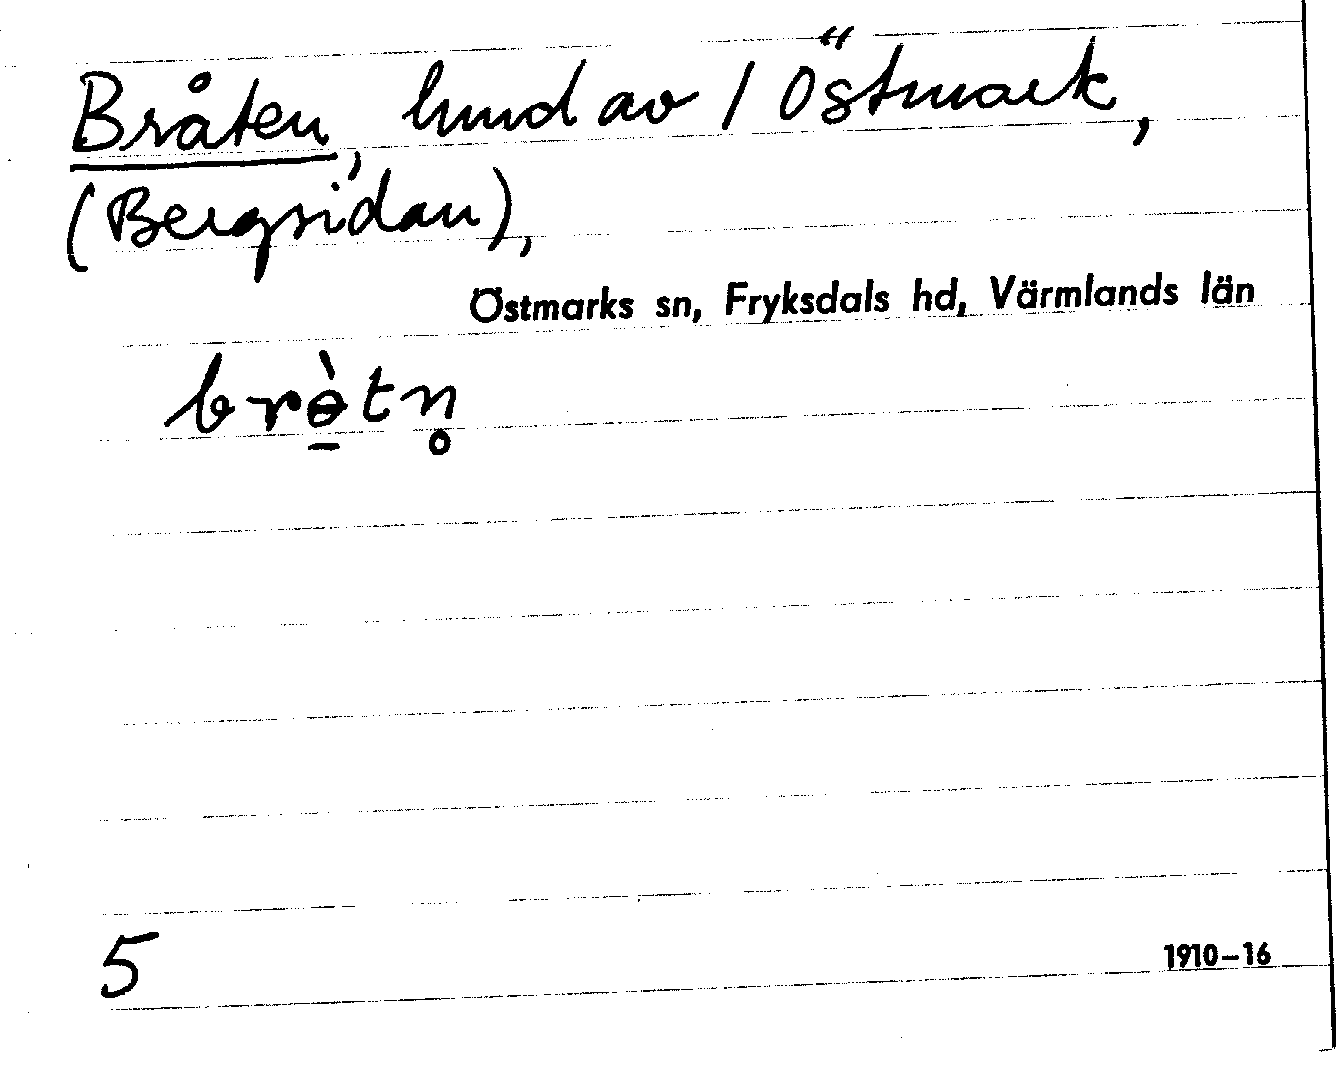 Bråten, hmd av 1 Östmark,
(Bergsidan),
Östmarks sn, Fryksdals hd, Värmlands län
brɵ̱̀tn̥
5
1910–16